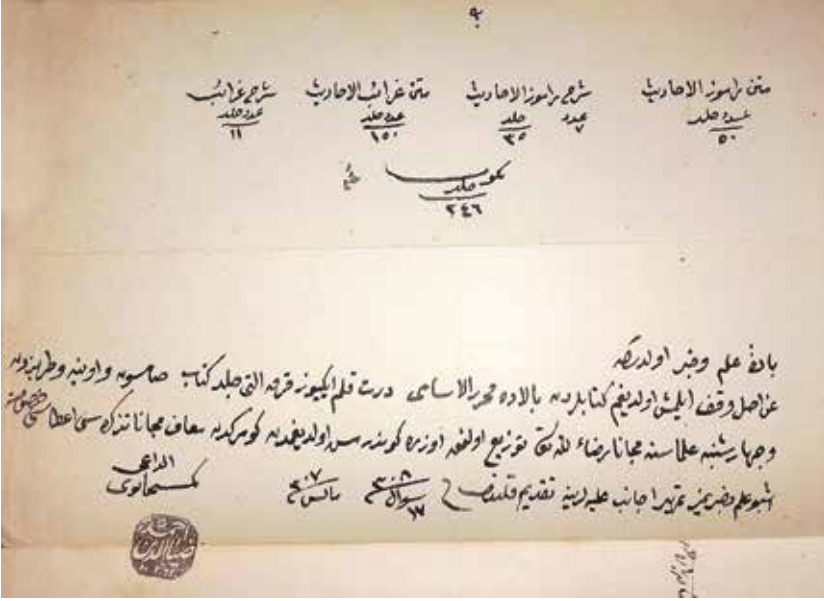 متن راموز الاحاديث شرح راموز الاحاديث متن غرائب الاحاديث شرح غرائب
عدد جلد عدد جلد عدد جلد عدد جلد
٥٠ ٧ ٣٥ ١٥٠ ١١
يكون
جلد
٢٤٦
باعث علم وخبر اولدركه
عن اصل وقف ايلمش اولديغم كتابلردن بالاده محرر الاسامى درت قلم ايكيوز قرق التى جلد كتاب صامسون و اونيه وطربزون
وچهارشنبه علماسنه مجانا رضاء لله توزيع اولنمق اوزره كوندرمش اولديغمدن كومركدن معاف مجانا تذكره سى اعطاسى ضمننده
اشبو علم وخبريمز تمهيرا جانب عاليلرينه تقديم قلندى ١٧ شوال ٣٠٨ مايس ٣٠٧
الداعى
كمشخانوى